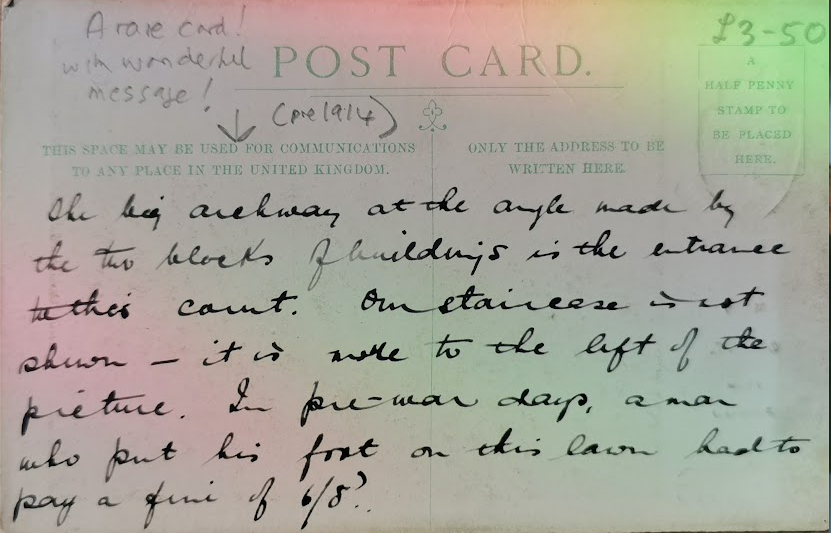 A rare card!
with wonderful
message!
(pre 1914)
£3-50
POST CARD.
THIS SPACE MAY BE USED FOR COMMUNICATIONS
TO ANY PLACE IN THE UNITED KINGDOM.
ONLY THE ADDRESS TO BE
WRITTEN HERE.
A
HALF PENNY
STAMP TO
BE PLACED
HERE.
The big archway at the angle made by
the two blocks of buildings is the entrance
to this court. Our staircase is not
shewn — it is more to the left of the
picture. In pre-war days, a man
who put his foot on this lawn had to
pay a fine of 6/8?